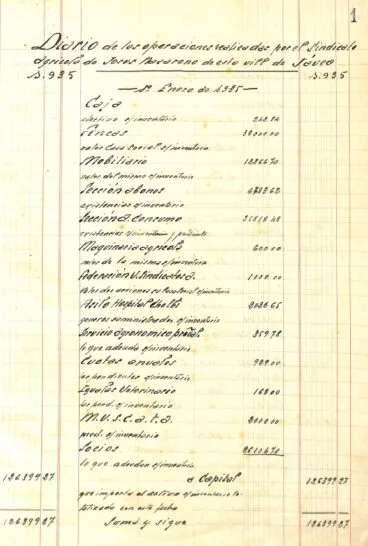 1
Diario de las operaciones realizadas por el Sindicato
Agrícola de Jesús Nazareno de esta villa de Jávea
1.935 1.935
1º Enero de 1935
Caja
efectivo s/inventario 242.24
Fincas 38000.00
valor Casa Social s/inventario
Mobiliario 12266.70
valor del mismo s/inventario
Sección abonos 6783.62
existencias s/inventario
Sección d. Consumo 35818.48
existencias s/inventario y pendiente
Maquinaria agrícola 600.00
valor de la misma s/inventario
Federación V. Sindicatos A. 1000.00
valor dos acciones s/inventario
Asilo Hospital Cholbi 2032.65
generos suministrados s/inventario
Servicio agronomico pral. 359.78
lo que adeuda s/inventario
Cuotas anuales 929.00
los pendientes s/inventario
Igualas Veterinario 168.00
los pend. s/inventario
M.V.S.C.a.t.a. 2000.00
pend. s/inventario
Socios
lo que adeudan s/inventario
126399.27 a Capital 126399.27
que importa el activo s/inventario
en esta fecha
126399.27 Suma y sigue 126399.27